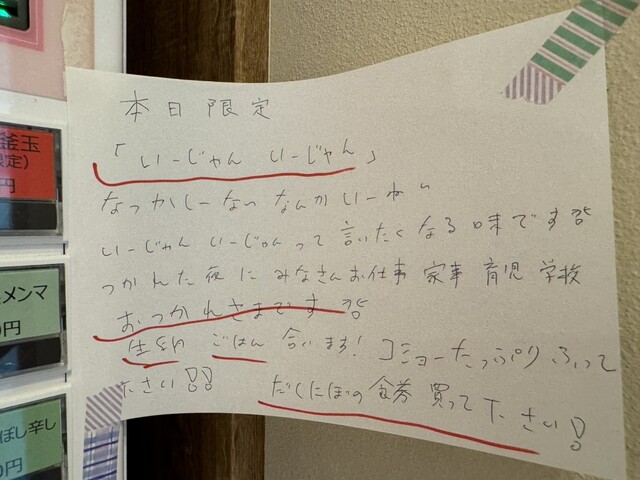 本日限定
「いーじゃん いーじゃん」
なつかしーない なんか いーねい
いーじゃん いーじゃんって言いたくなる味です
つかれた夜に みなさんお仕事 家事 育児 学校
おつかれさまです
生卵 ごはん 合います! コショーたっぷりふって
下さい!!
だくにぼの食券買って下さい!
釜玉
限定)
円
メンマ
0円
ぼし辛し
0円